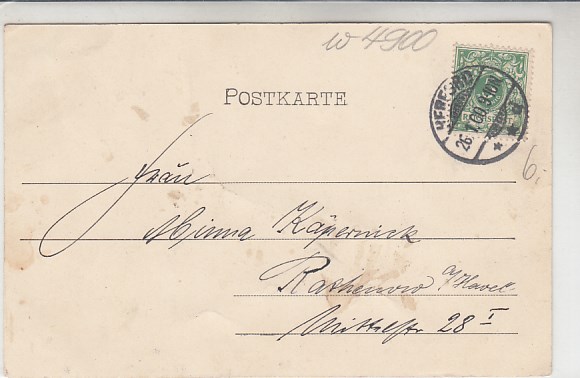 W 4900
POSTKARTE
HERFORD
26.1.00
Frau
Minna Käpernick
Rathenow a/Havel
Mittelstr 28 I
6.-